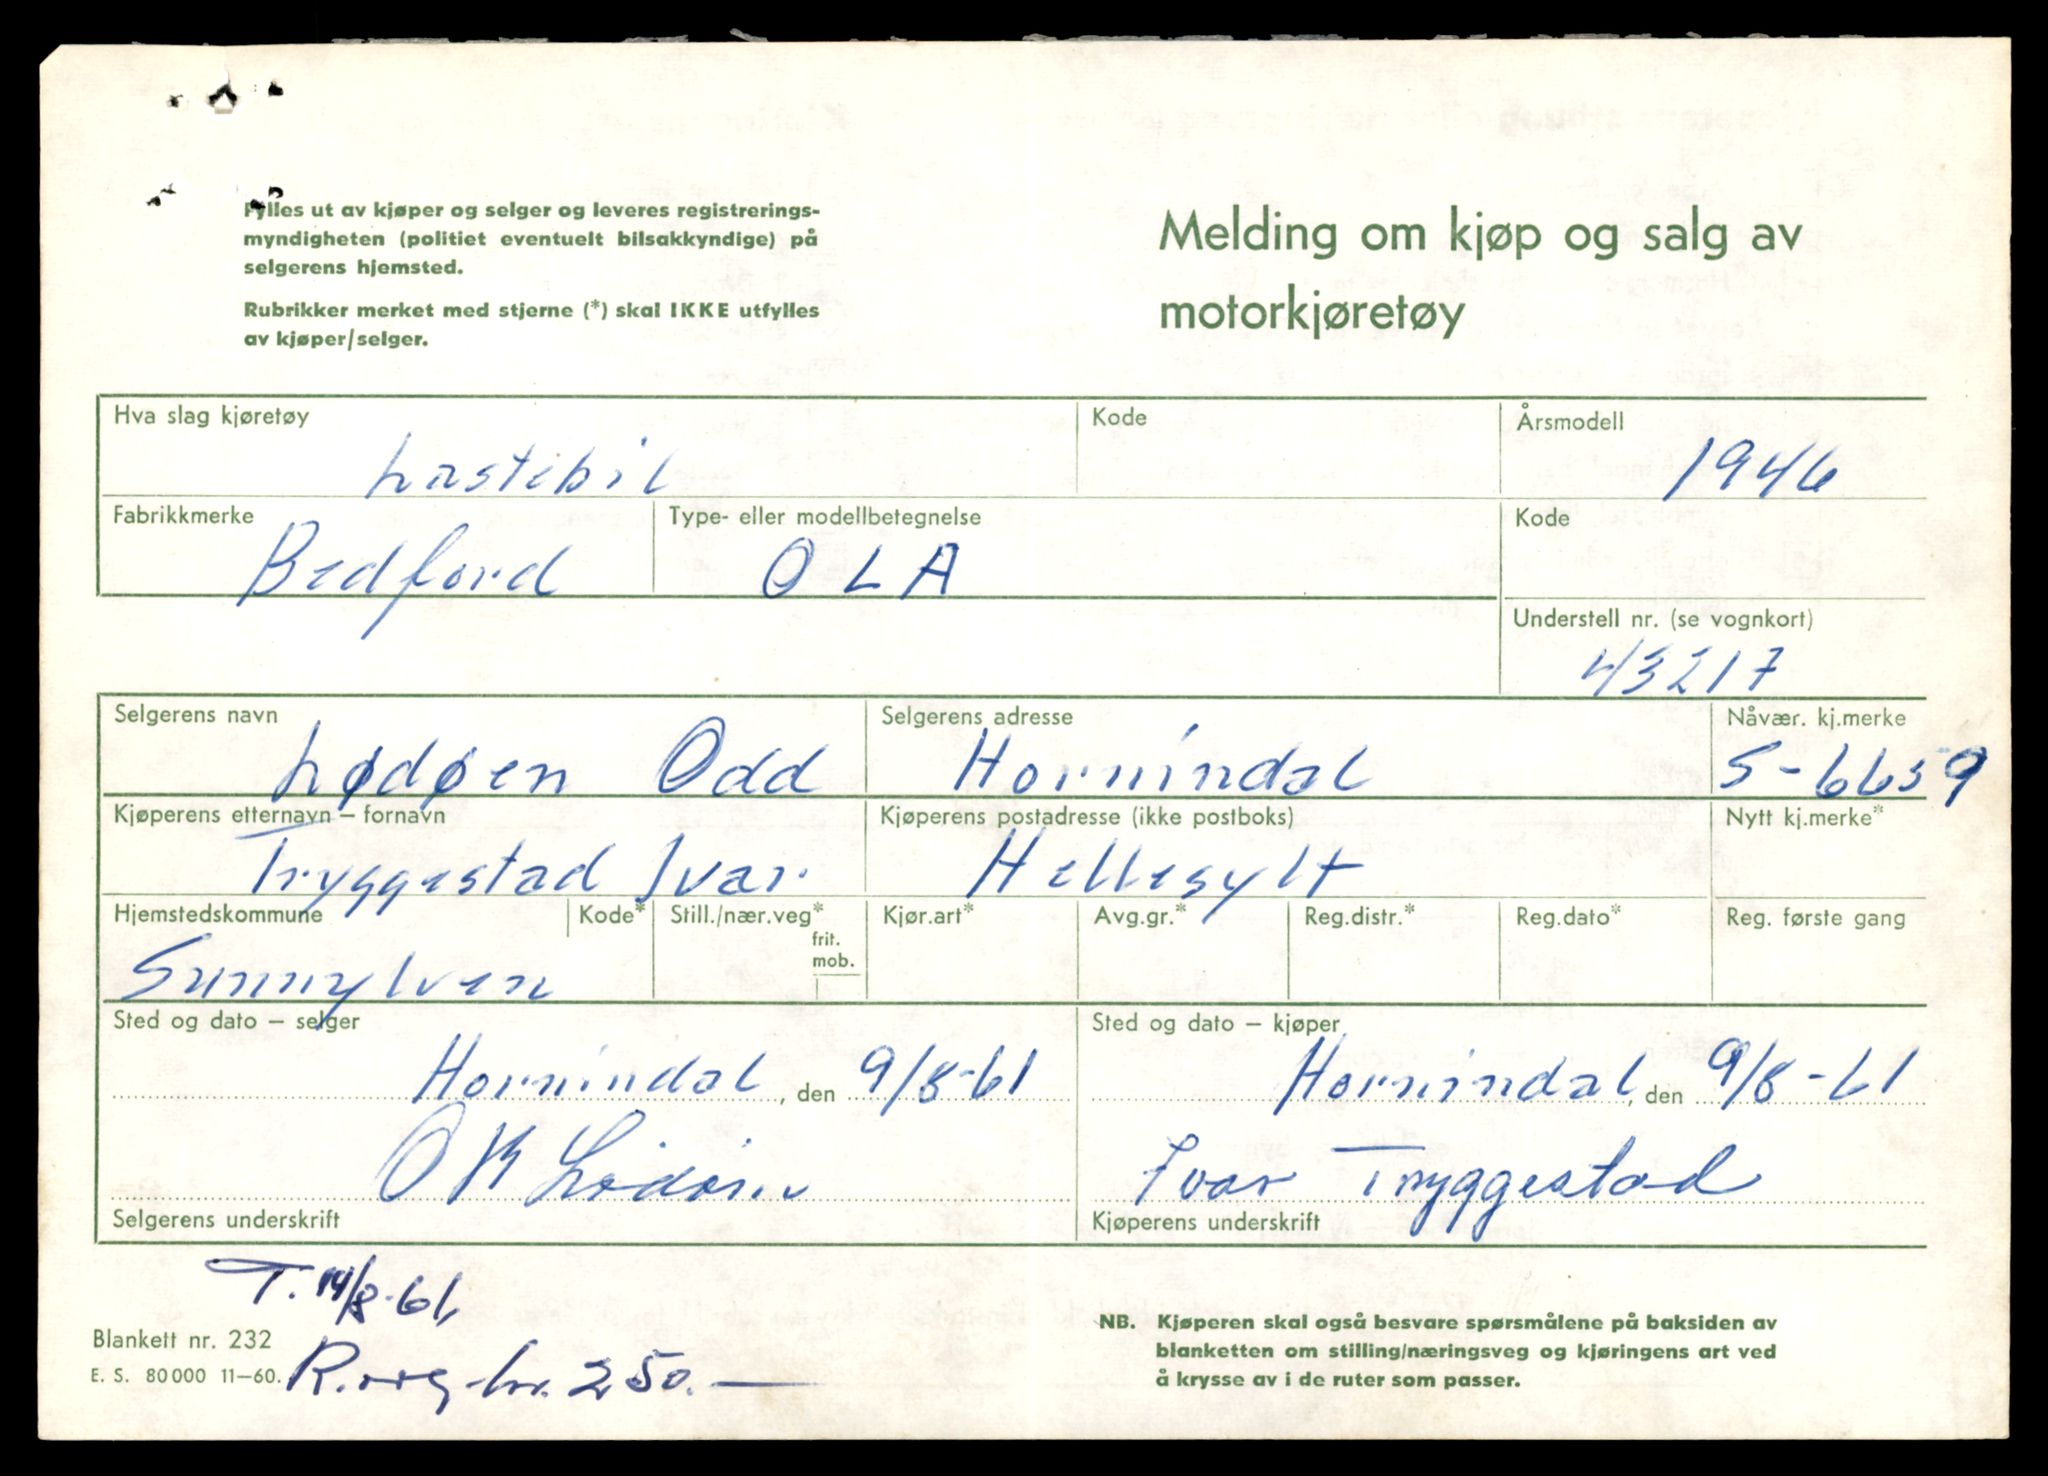 Fylles ut av kjøper og selger og leveres registrerings-
myndigheten (politiet eventuelt bilsakkyndige) på
selgerens hjemsted.
Rubrikker merket med stjerne (*) skal IKKE utfylles
av kjøper/selger.
Melding om kjøp og salg av
motorkjøretøy
Hva slag kjøretøy
Kode
Årsmodell
Lastebil
1946
Fabrikkmerke
Type- eller modellbetegnelse
Kode
Bedford
OLA
Understell nr. (se vognkort)
43217
Selgerens navn
Selgerens adresse
Nåvær. kj.merke
Lødøen Odd
Hornindal
S-6659
Kjøperens etternavn – fornavn
Kjøperens postadresse (ikke postboks)
Nytt kj.merke*
Tryggestad Ivar.
Hellesylt
Hjemstedskommune
Kode*
Still./nær.veg*
frit.
mob.
Kjør.art*
Avg.gr.*
Reg.distr.*
Reg.dato*
Reg. første gang
Sunnylven
Sted og dato – selger
Sted og dato – kjøper
Hornindal, den 9/8-61
Hornindal, den 9/8-61
O Lødøen
Ivar Tryggestad
Selgerens underskrift
Kjøperens underskrift
T. 14/8-61,
Blankett nr. 232
E. S. 80 000 11–60.
kr. 250.—
NB. Kjøperen skal også besvare spørsmålene på baksiden av
blanketten om stilling/næringsveg og kjøringens art ved
å krysse av i de ruter som passer.